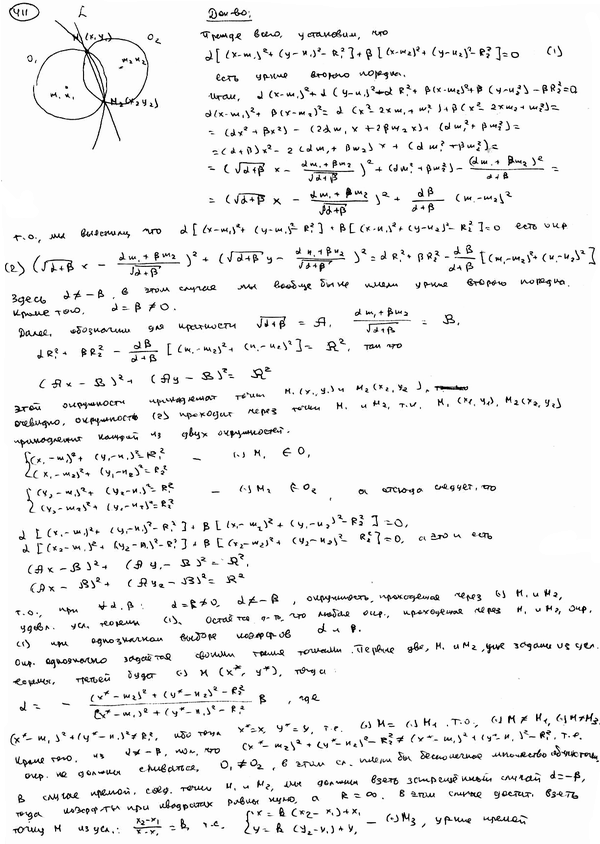 411
L
O₁
O₂
M₁(x₁y₁)
m₁n₁
m₂n₂
M₂(x₂y₂)
Док-во:
Прежде всего, установим, что
α[(x-m₁)²+(y-n₁)²-R₁²]+β[(x-m₂)²+(y-n₂)²-R₂²]=0 (1)
есть ур-ние второго порядка.
α(x-m₁)²+β(x-m₂)²=α(x²-2xm₁+m₁²)+β(x²-2xm₂+m₂²)=
=(αx²+βx²)-(2αm₁x+2βm₂x)+(αm₁²+βm₂²)=
=(α+β)x²-2(αm₁+βm₂)x+(αm₁²+βm₂²)=
=(√α+β x - αm₁+βm₂/√α+β)²+(αm₁²+βm₂²)-(αm₁+βm₂)²/α+β=
=(√α+β x - αm₁+βm₂/√α+β)²+αβ/α+β (m₁-m₂)²
т.о., мы выяснили, что α[(x-m₁)²+(y-n₁)²-R₁²]+β[(x-m₂)²+(y-n₂)²-R₂²]=0 есть окр
(2) (√α+β x - αm₁+βm₂/√α+β)²+(√α+β y - αn₁+βn₂/√α+β)²=αR₁²+βR₂²-αβ/α+β[(m₁-m₂)²+(n₁-n₂)²]
Здесь α≠-β, в этом случае мы вообще бы не имели ур-ние второго порядка.
Кроме того, α=β≠0.
Далее, обозначим для краткости √α+β = A, αm₁+βm₂/√α+β = B,
αR₁²+βR₂²-αβ/α+β[(m₁-m₂)²+(n₁-n₂)²]=R², так что
(Ax-B)²+(Ay-B)²=R²
Этой окружности принадлежат точки M₁(x₁,y₁) и M₂(x₂,y₂),
очевидно, окружность (2) проходит через точки M₁ и M₂, т.к. M₁(x₁,y₁), M₂(x₂,y₂)
принадлежит каждой из двух окружностей.
{(x₁-m₁)²+(y₁-n₁)²=R₁²
(x₁-m₂)²+(y₁-n₂)²=R₂² — (·)M₁ ∈ O₁
{(x₂-m₁)²+(y₂-n₁)²=R₁²
(x₂-m₂)²+(y₂-n₂)²=R₂² — (·)M₂ ∈ O₂, а отсюда следует, что
α[(x₁-m₁)²+(y₁-n₁)²-R₁²]+β[(x₁-m₂)²+(y₁-n₂)²-R₂²]=0,
α[(x₂-m₁)²+(y₂-n₁)²-R₁²]+β[(x₂-m₂)²+(y₂-n₂)²-R₂²]=0, а это и есть
(Ax-B)²+(Ay₁-B)²=R²,
(Ax-B)²+(Ay₂-B)²=R²
т.о., при ∀α,β: α=β≠0, α≠-β, окружность, проходящая через (·) M₁ и M₂,
удовл. усл. теоремы (1). Остаётся что любая окр., проходящая через M₁ и M₂,
(1) при однозначном выборе коэфф-ов α и β.
Окр. однозначно задаётся своими тремя точками. Первые две, M₁ и M₂, уже заданы из усл.
теоремы, третьей будет (·) M(x*,y*), тогда
α = - (x*-m₂)²+(y*-n₂)²-R₂²/(x*-m₁)²+(y*-n₁)²-R₁² β, где
(x*-m₁)²+(y*-n₁)²≠R₁², ибо тогда x*=x, y*=y, т.е. (·)M=(·)M₁. Т.о., (·)M≠M₁, (·)M≠M₂.
Кроме того, из α≠-β, что (x*-m₂)²+(y*-n₂)²-R₂²≠(x*-m₁)²+(y*-n₁)²-R₁², т.е.
окр. не должны сливаться, O₁≠O₂, в этом сл. имели бы бесконечное множество
В случае прямой, соед. точки M₁ и M₂, мы должны взять случай α=-β,
тогда коэфф-ты при квадратах равны нулю, а R=∞. В этом случае достат. взять
точку M из усл.: x₂-x₁/x-x₁=B, т.е. {x=B(x₂-x₁)+x₁
y=B(y₂-y₁)+y₁ — (·)M₃, ур-ние прямой